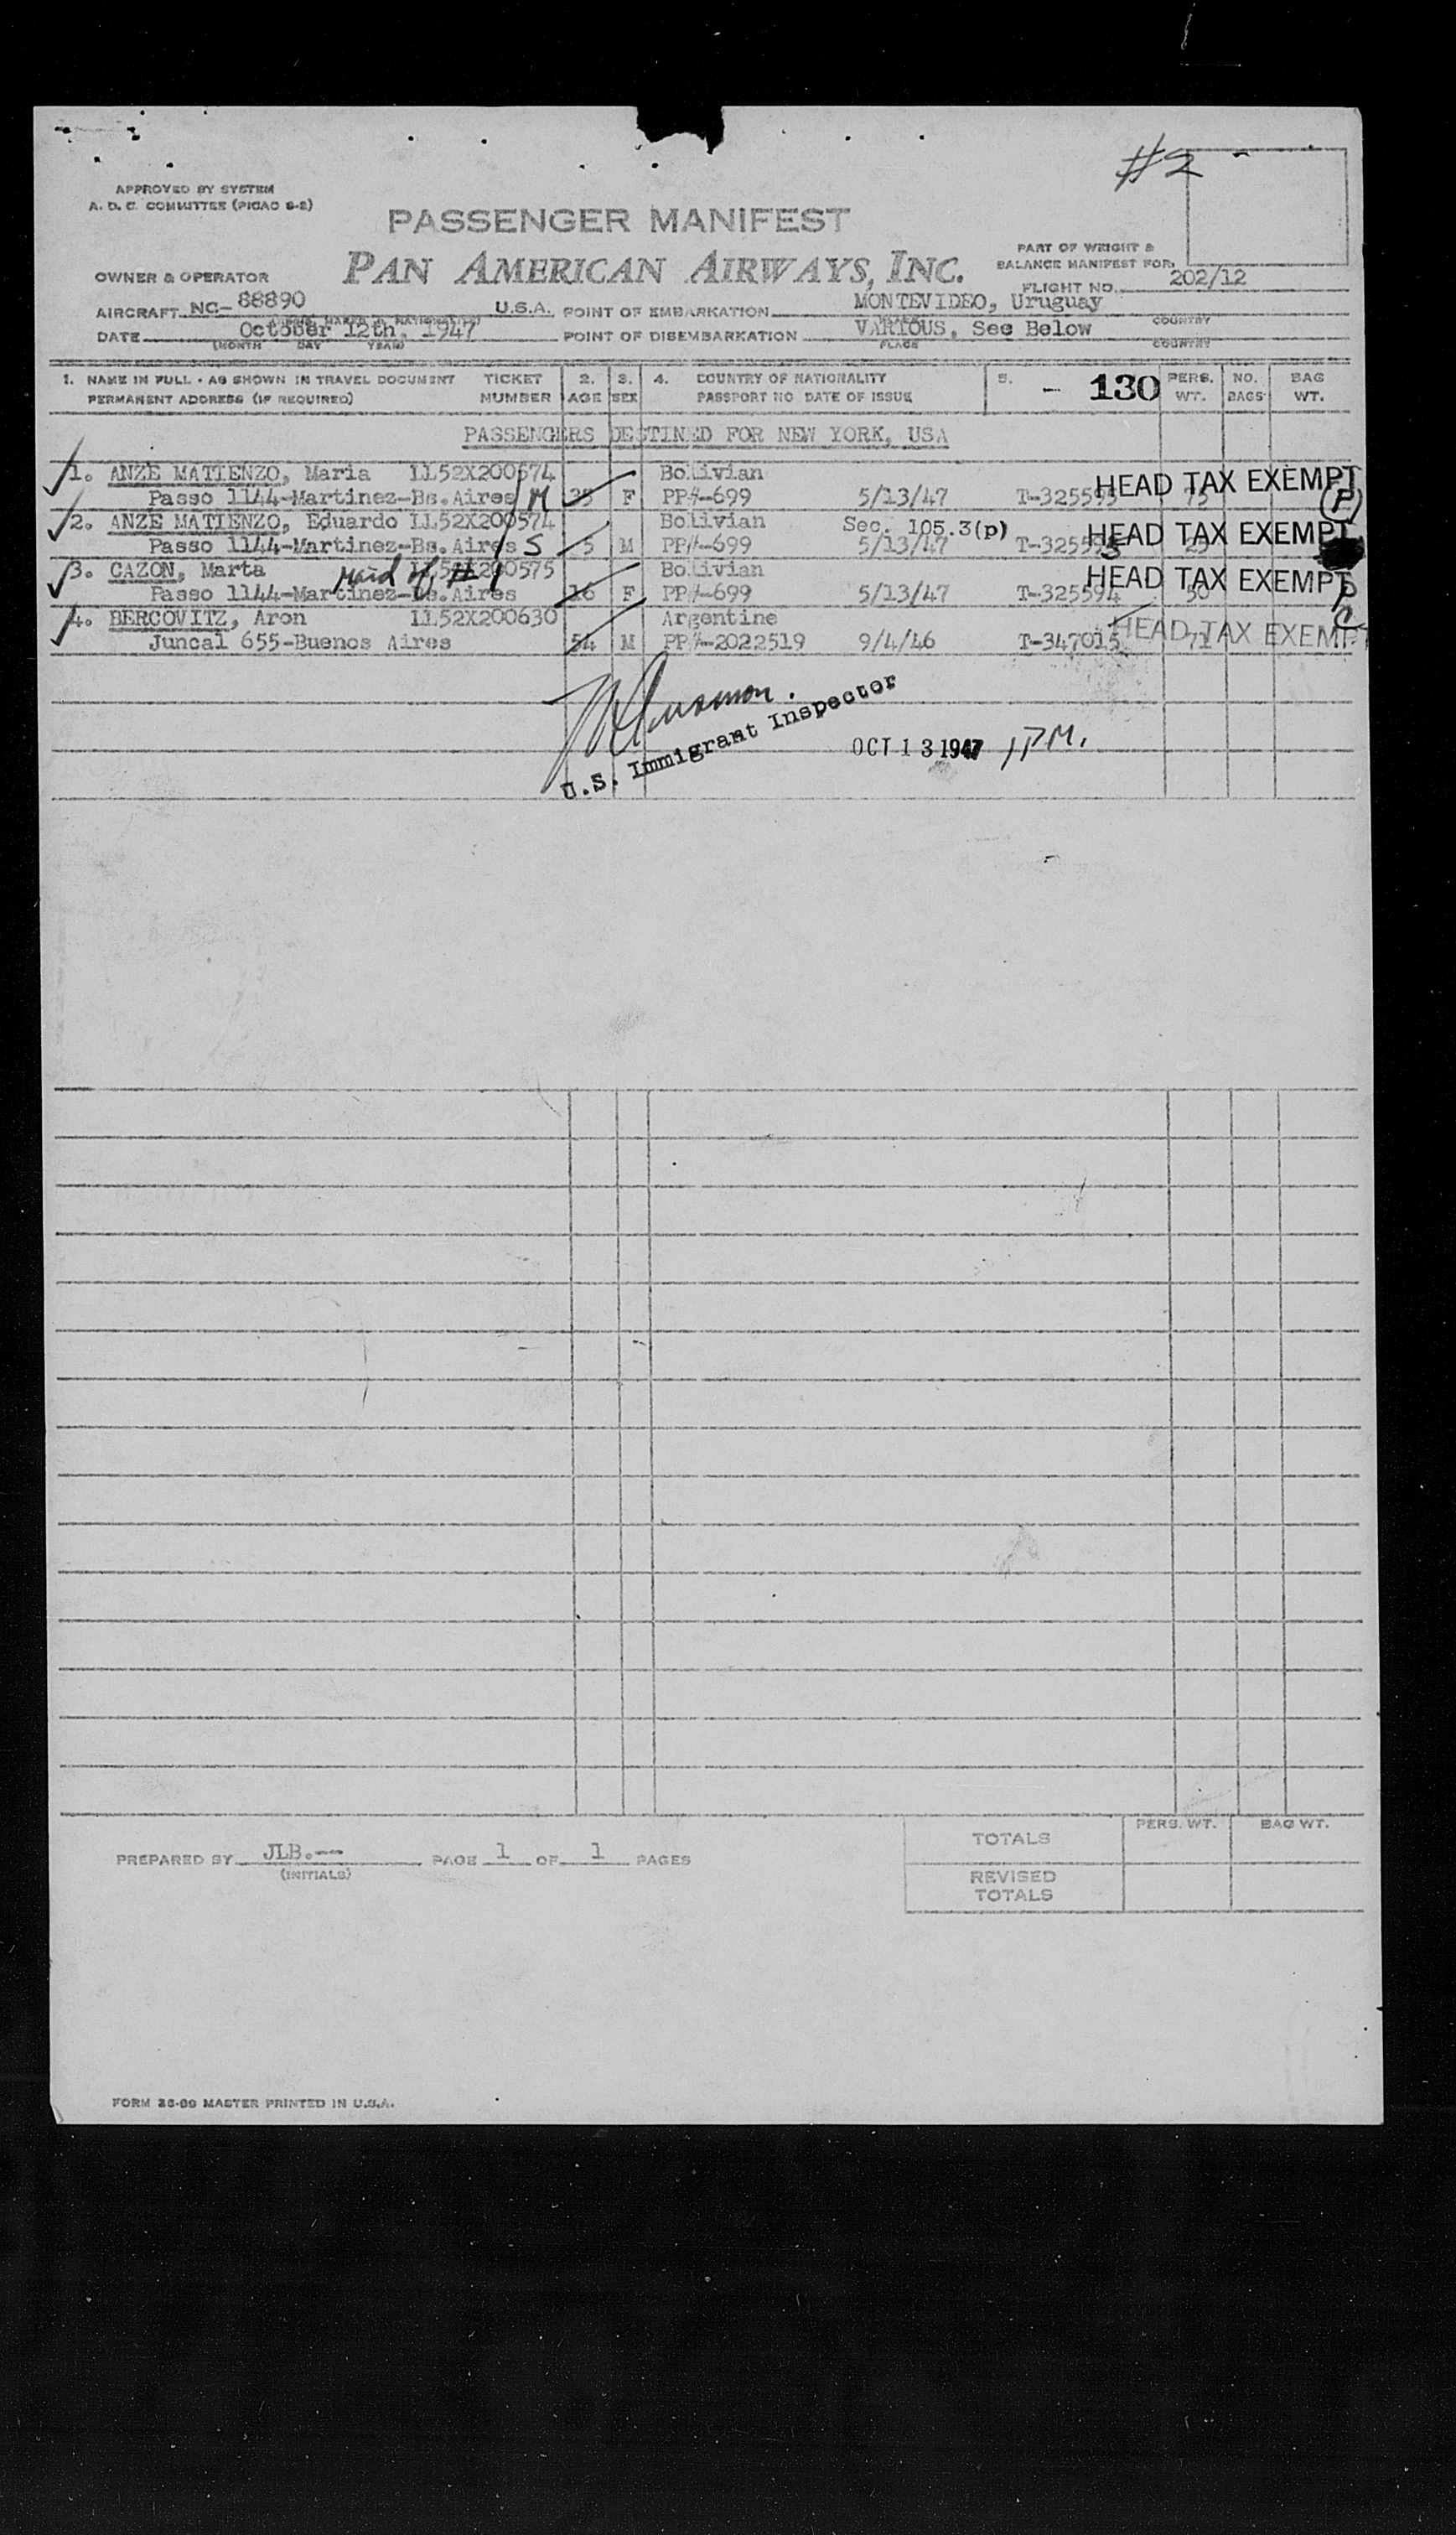 #2
APPROVED BY SYSTEM
A. D. C. COMMITTEE (PICAO 8-2)
PASSENGER MANIFEST
PAN AMERICAN AIRWAYS, INC.
PART OF WEIGHT &
BALANCE MANIFEST FOR:
OWNER & OPERATOR
FLIGHT NO. 202/12
AIRCRAFT NC- 88890 U.S.A. POINT OF EMBARKATION MONTEVIDEO, Uruguay
DATE October 12th, 1947 POINT OF DISEMBARKATION VARIOUS, See Below
(MONTH DAY YEAR) PLACE COUNTRY
1. NAME IN FULL - AS SHOWN IN TRAVEL DOCUMENT TICKET 2. 3. 4. COUNTRY OF NATIONALITY 5. - 130 PERS. NO. BAG
PERMANENT ADDRESS (IF REQUIRED) NUMBER AGE SEX PASSPORT NO DATE OF ISSUE WT. BAGS WT.
PASSENGERS DESTINED FOR NEW YORK, USA
1. ANZE MATIENZO, Maria LL52X200574 Bolivian HEAD TAX EXEMPT
Passo 1144-Martinez-Bs.Aires M F PP#-699 5/13/47 T-325595 75 (P)
2. ANZE MATIENZO, Eduardo LL52X200574 Bolivian Sec. 105.3(p) HEAD TAX EXEMPT
Passo 1144-Martinez-Bs.Aires S 5 M PP#-699 5/13/47
3. CAZON, Marta Maid of #1 LL52X200575 Bolivian HEAD TAX EXEMPT
Passo 1144-Martinez-Bs.Aires 16 F PP#-699 5/13/47 T-325594 50
4. BERCOVITZ, Aron LL52X200630 Argentine
Juncal 655-Buenos Aires 54 M PP#-2022519 9/4/46 T-347015 71 HEAD TAX EXEMPT
U.S. Immigrant Inspector
OCT 13 1947 1 PM.
PREPARED BY JLB.-- PAGE 1 OF 1 PAGES
(INITIALS)
TOTALS PERS. WT. BAG WT.
REVISED
TOTALS
FORM 26-99 MASTER PRINTED IN U.S.A.